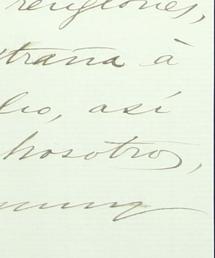 renglones,
traña à
lio, así
nosotros,